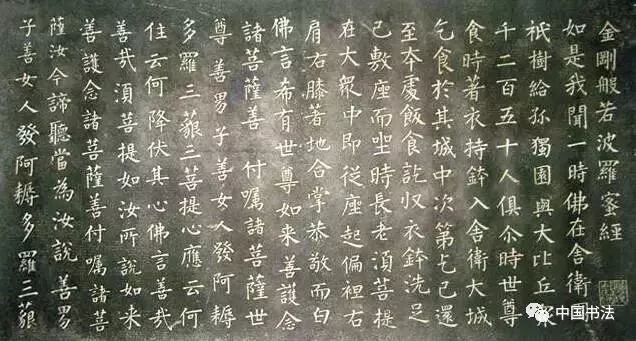 金剛般若波羅蜜經
如是我聞一時佛在舍衛國
祇樹給孤獨園與大比丘眾
千二百五十人俱尒時世尊
食時著衣持鉢入舍衛大城
乞食於其城中次第乞已還
至本處飯食訖収衣鉢洗足
已敷座而坐時長老湏菩提
在大眾中即從座起偏袒右
肩右膝著地合掌恭敬而白
佛言希有世尊如来善護念
諸菩薩善付囑諸菩薩世
尊善男子善女人發阿耨
多羅三藐三菩提心應云何
住云何降伏其心佛言善哉
善哉湏菩提如汝所說如来
善護念諸菩薩善付囑諸菩
薩汝今諦聽當為汝說善男
子善女人發阿耨多羅三藐
中国书法